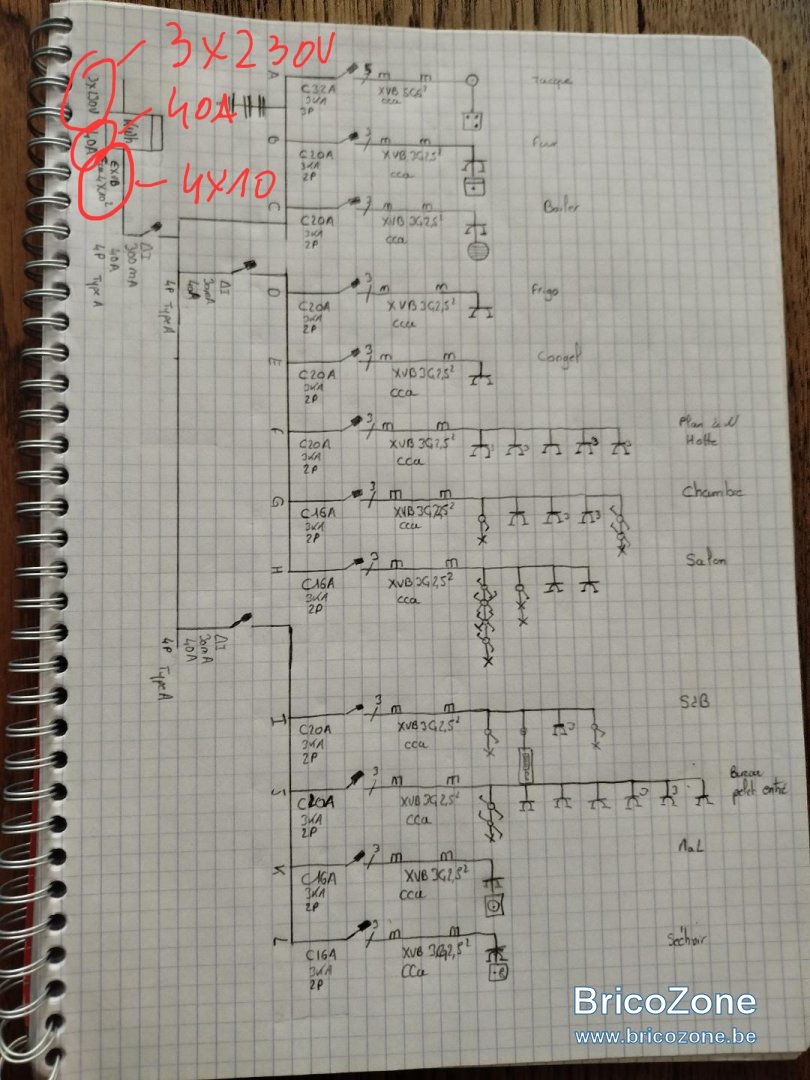 3X230V
40A
4X10
3X230V
kWh
40A
EXVB
4X10²
ΔI
300mA
40A
4P Type A
ΔI
30mA
40A
4P Type A
A
C32A
3KA
3P
5
XVB 5G6²
cca
B
C20A
3KA
2P
3
XVB 3G2,5²
cca
Four
C
C20A
3KA
2P
3
XVB 3G2,5²
cca
Boiler
D
C20A
3KA
2P
3
XVB 3G2,5²
cca
Frigo
E
C20A
3KA
2P
3
XVB 3G2,5²
cca
Congel
F
C20A
3KA
2P
3
XVB 3G2,5²
cca
Hotte
G
C16A
3KA
2P
3
XVB 3G2,5²
cca
Chambre
H
C16A
3KA
2P
3
XVB 3G2,5²
cca
Salon
ΔI
30mA
40A
4P Type A
I
C20A
3KA
2P
3
XVB 3G2,5²
cca
SdB
J
C20A
3KA
2P
3
XVB 3G2,5²
cca
Bureau
pelet entré
K
C16A
3KA
2P
3
XVB 3G2,5²
cca
MaL
L
C16A
3KA
2P
3
XVB 3G2,5²
cca
Séchoir
BricoZone
www.bricozone.be